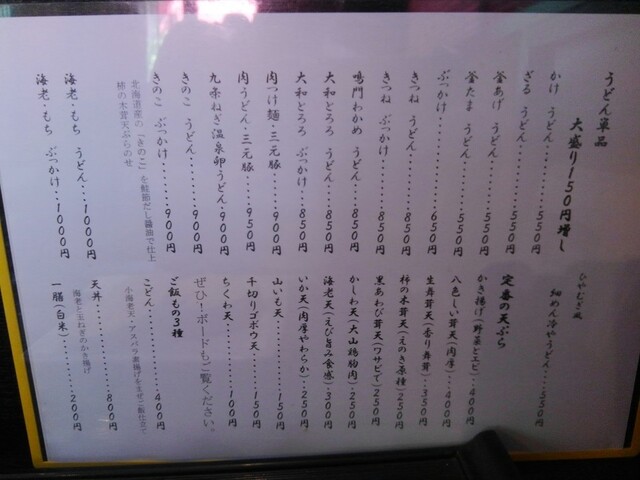 うどん単品
大盛り150円増し
かけ うどん・・・・・550円
ざる うどん・・・・・550円
釜あげ うどん・・・・550円
釜たま うどん・・・・550円
ぶっかけ・・・・・・・650円
きつね うどん・・・・850円
きつね ぶっかけ・・・850円
鳴門わかめ うどん・・850円
大和とろろ うどん・・850円
大和とろろ ぶっかけ・・850円
肉つけ麺・三元豚・・・950円
肉うどん・三元豚・・・950円
九条ねぎ温泉卵うどん・900円
きのこ うどん・・・・900円
きのこ ぶっかけ・・・900円
北海道産の「きのこ」を鮭節だし醤油で仕上
柿の木茸天ぷらのせ
海老・もち うどん・・・1000円
海老・もち ぶっかけ・・1000円
ひやむぎ風
細めん冷やうどん・・・・550円
定番の天ぷら
かき揚げ(野菜とエビ)・400円
八色しい茸天(肉厚)・・400円
生舞茸天(香り舞茸)・・350円
柿の木茸天(えのき原種)250円
黒あわび茸天(ワサビて)250円
かしわ天(大山鶏胸肉)・250円
海老天(えび旨み食感)・300円
いか天(肉厚やわらか)・250円
山いも天・・・・・・・150円
千切りゴボウ天・・・・150円
ちくわ天・・・・・・・100円
ぜひ!ボードもご覧ください。
ご飯もの3種
こどん・・・・・・・・400円
小海老天・アスパラ素揚げをまぜご飯仕立て
天丼・・・・・・・・・800円
海老と玉ねぎのかき揚げ
一膳(白米)・・・・・・200円